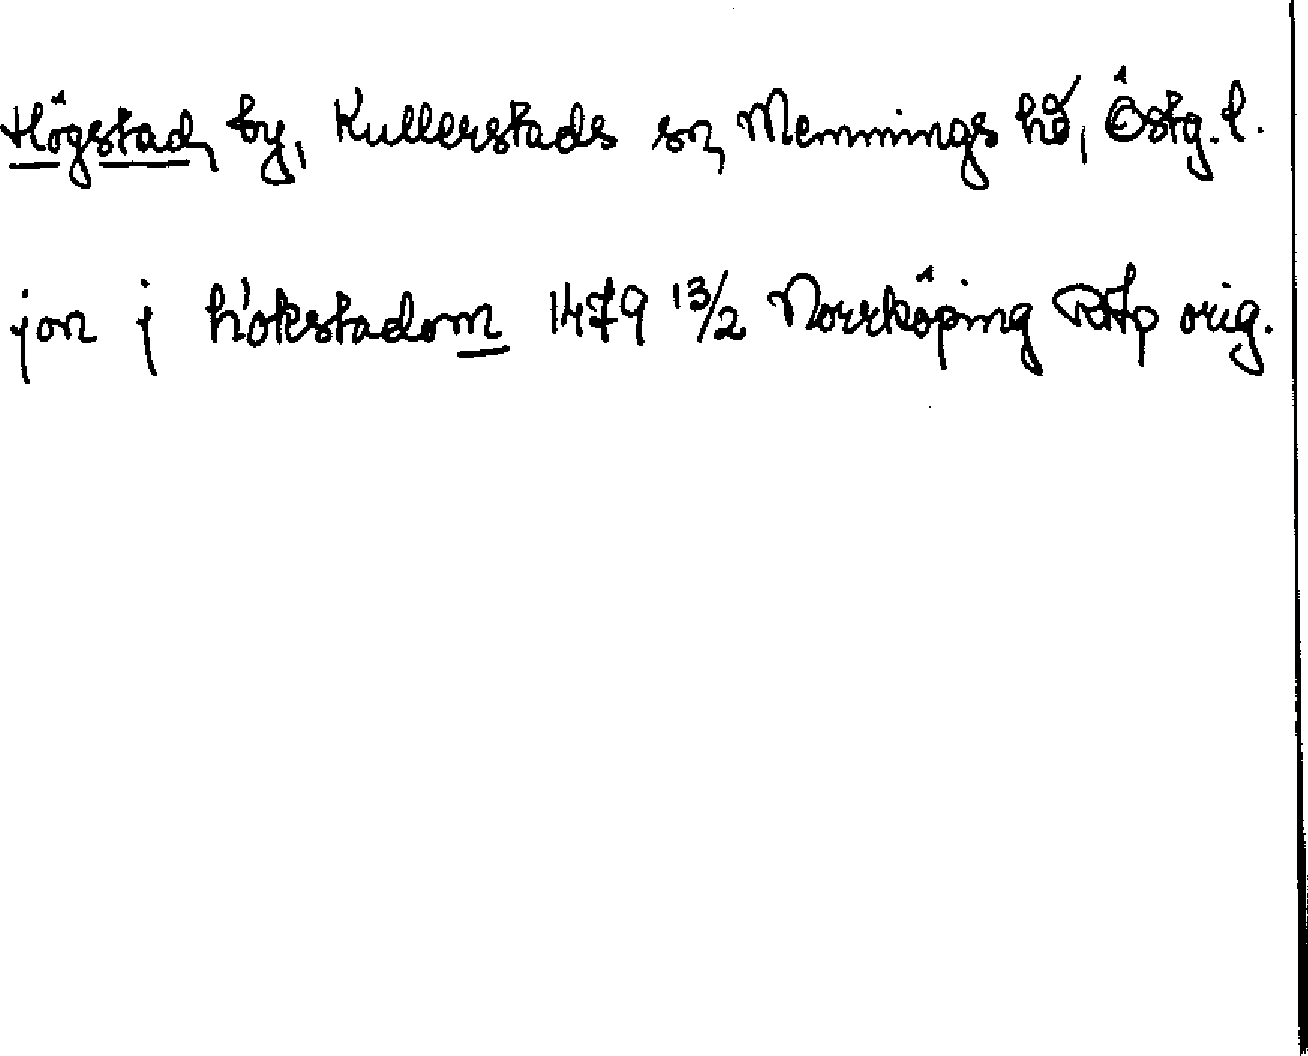 Högstad, by, Kullerstads sn, Memmings hd, Östg. l.
jon j hökstadom 1479 13/2 Norrköping RAp orig.